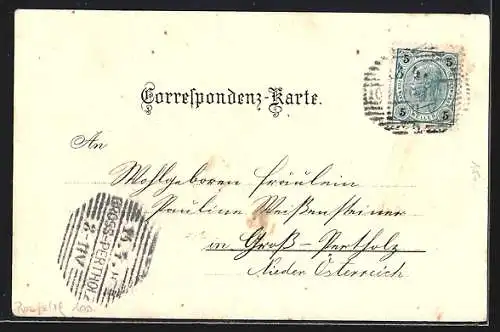 Correspondenz-Karte.
5 5
5 5
An
Wohlgeboren Fräulein
Pauline Weißensteiner
in Groß-Pertholz
Nieder Österreich
GROSS-PERTHOLZ